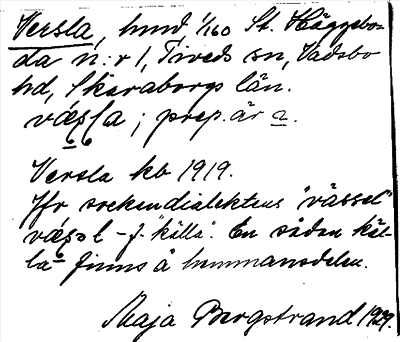 Versla, hmd 1/160 St. Häggebo-
da n:r 1, Tiveds sn, Vadsbo
hd, Skaraborgs län.
prep. är
Versla kb 1919.
Jfr sockendialektens "vässel"
f. "källa". En sådan käl-
la finns å hemmansdelen.
Maja Bergstrand 1929.